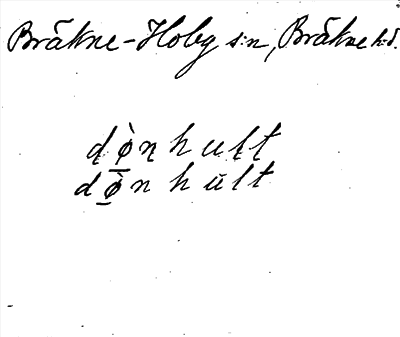 Bräkne-Hoby s:n, Bräkne h:d.
dø̀nhult
dø̀nhult